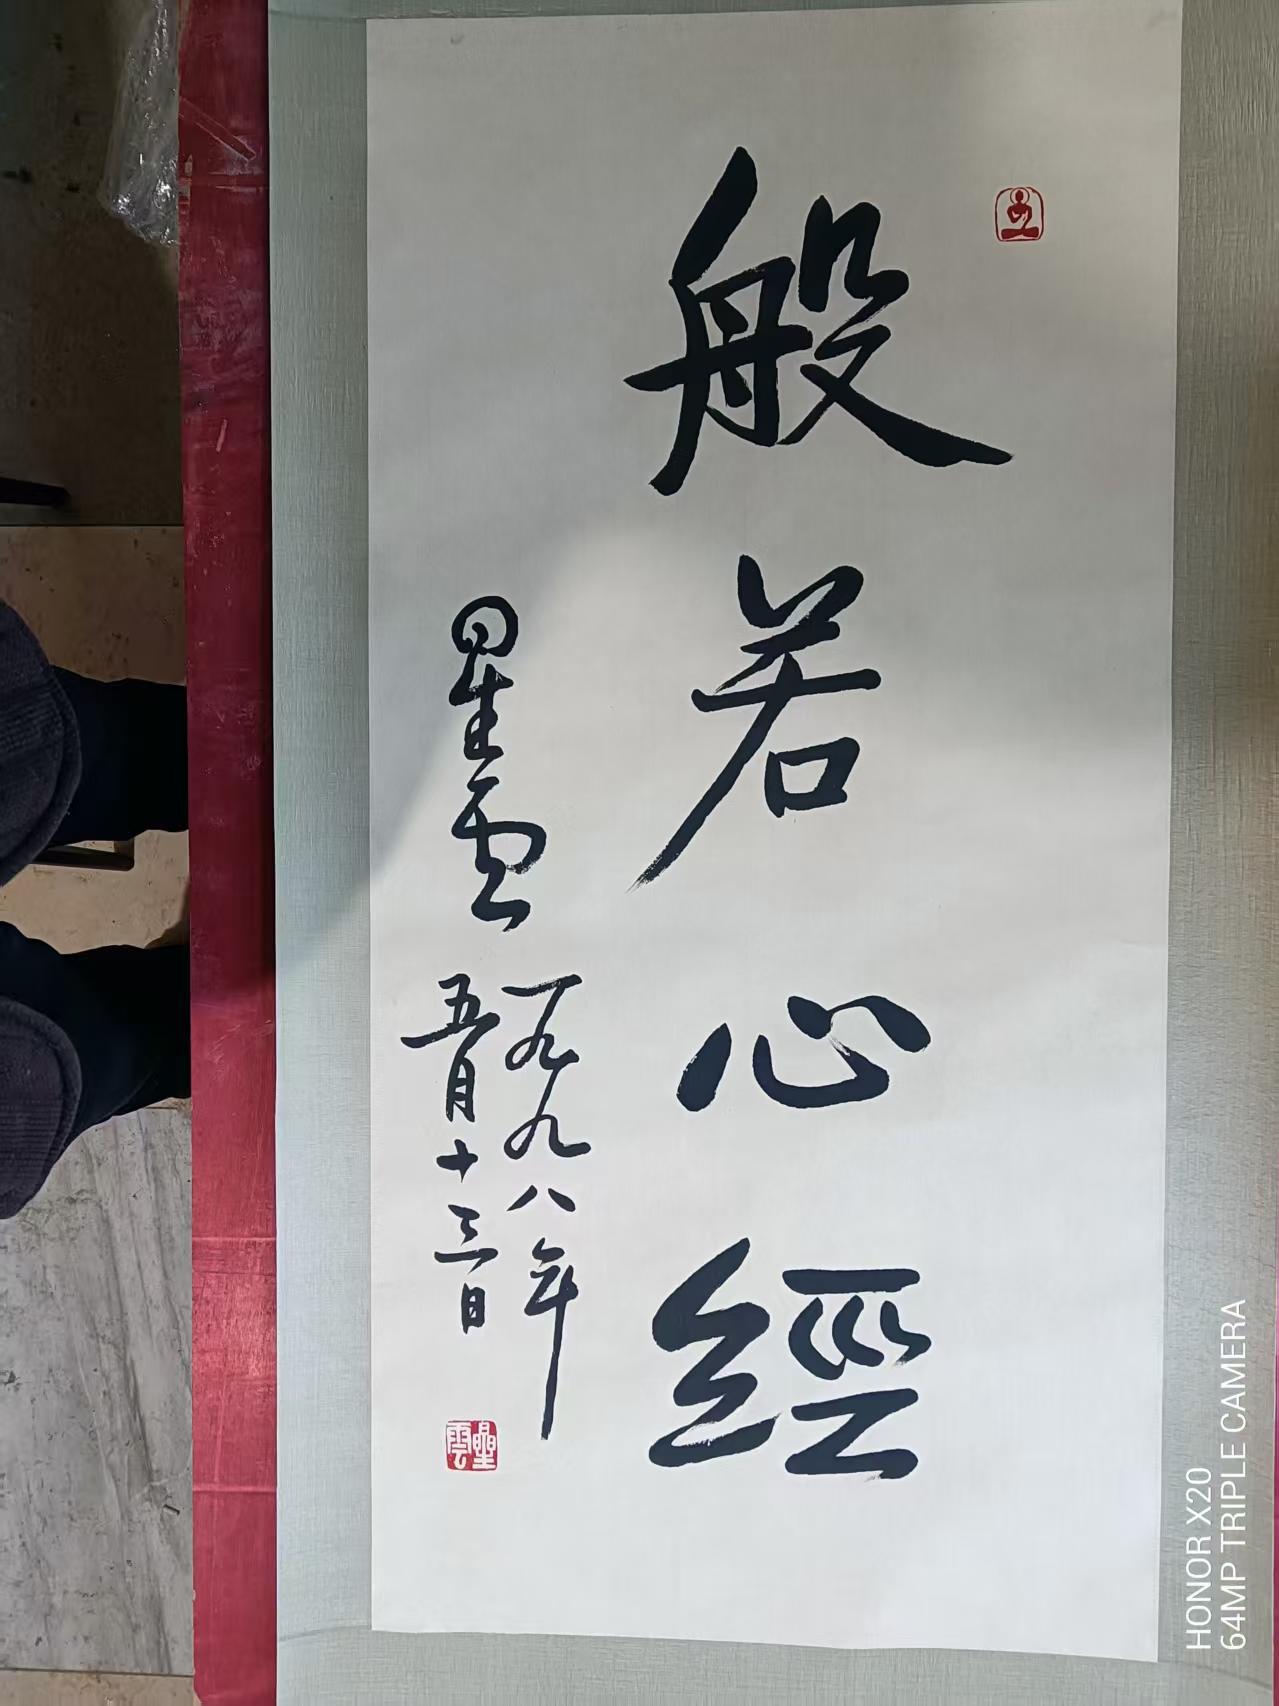 般若心經
星雲
一九九八年
五月十三日
星雲
HONOR X20
64MP TRIPLE CAMERA